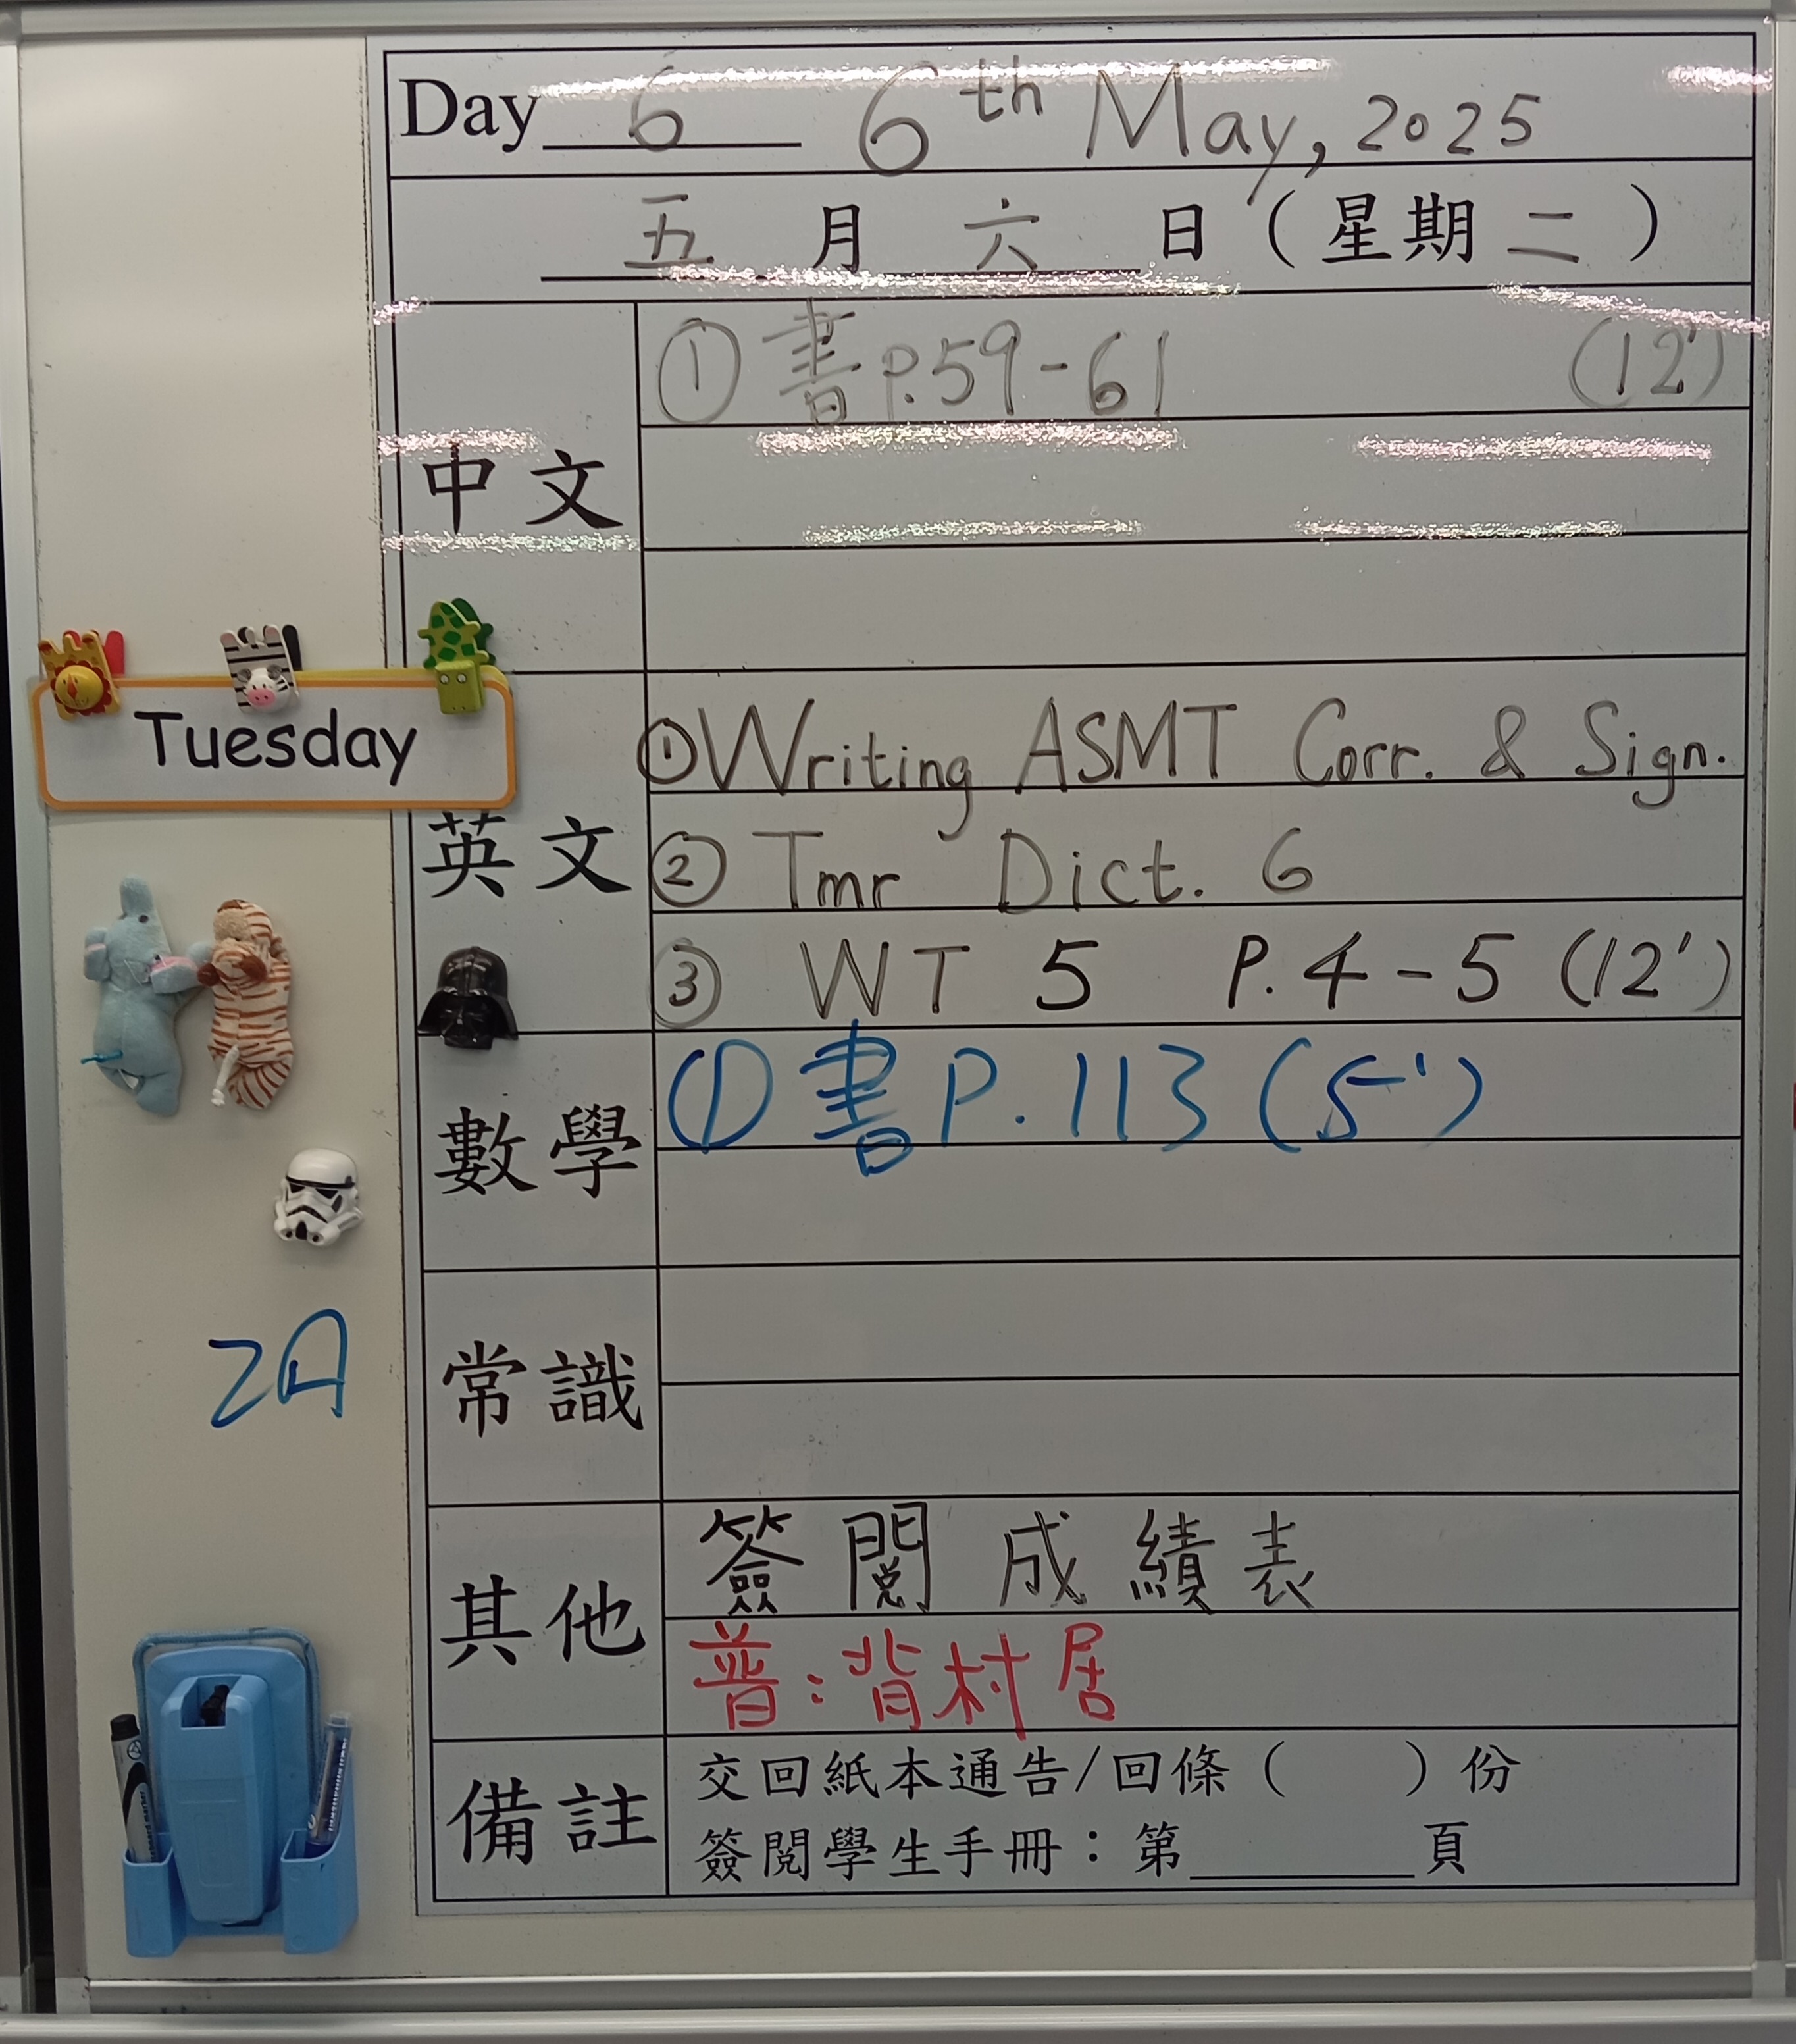 Day 6 6th May, 2025
五 月 六 日 ( 星期 二 )
中文
① 書P.59-61 (12')
Tuesday
英文
① Writing ASMT Corr. & Sign.
② Tmr Dict. 6
③ WT 5 P.4-5 (12')
數學
① 書P.113 (5')
2A
常識
其他
簽閱成績表
普:背村居
備註
交回紙本通告/回條( )份
簽閱學生手冊:第____頁